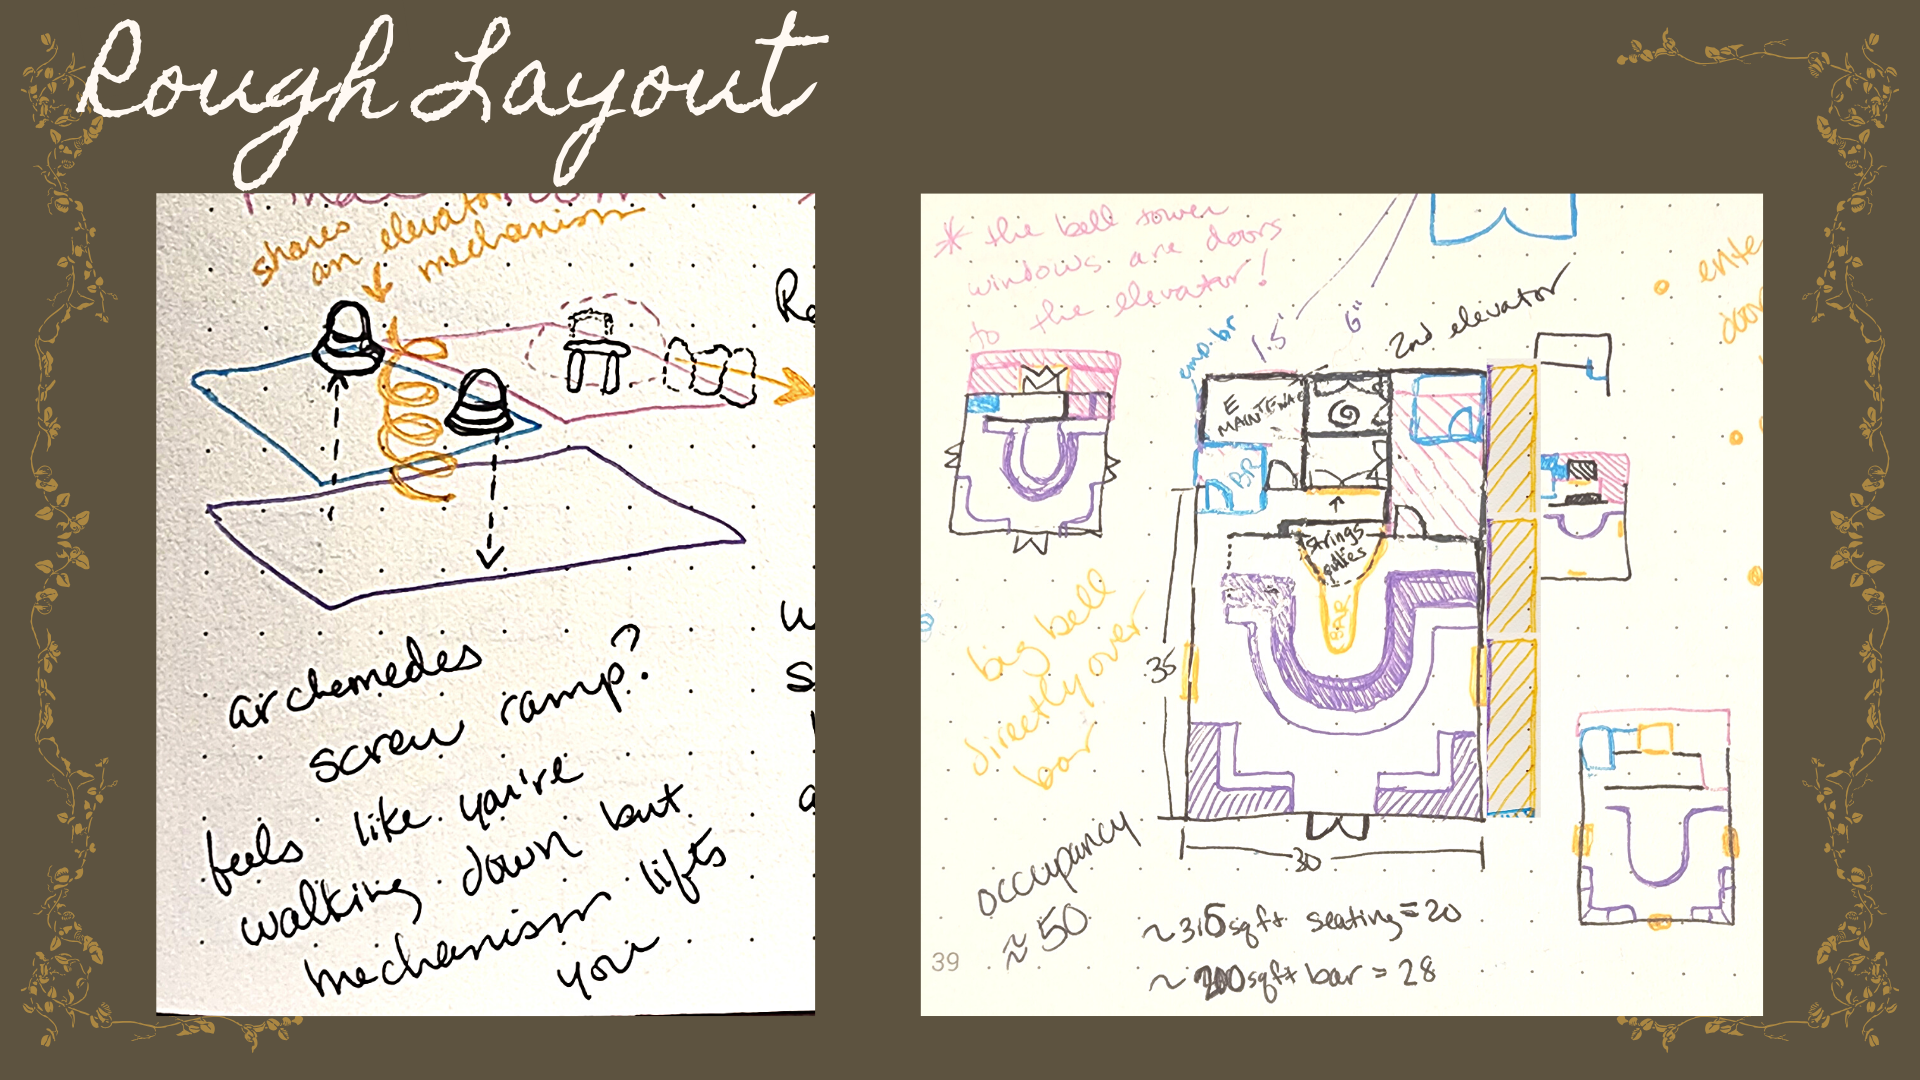 Rough Layout
shares
an elevator
mechanism
archemedes
screw ramp?
feels like you're
walking down but
mechanism lifts
you
* the bell tower
windows are doors
to the elevator!
emp. br
1.5'
6"
2nd elevator
E
MAINTENACE
BR
strings
pullies
BAR
big bell
directly over
bar
35
30
occupancy
≈ 50
~315sqft seating = 20
~200sqft bar = 28
39
ente
door